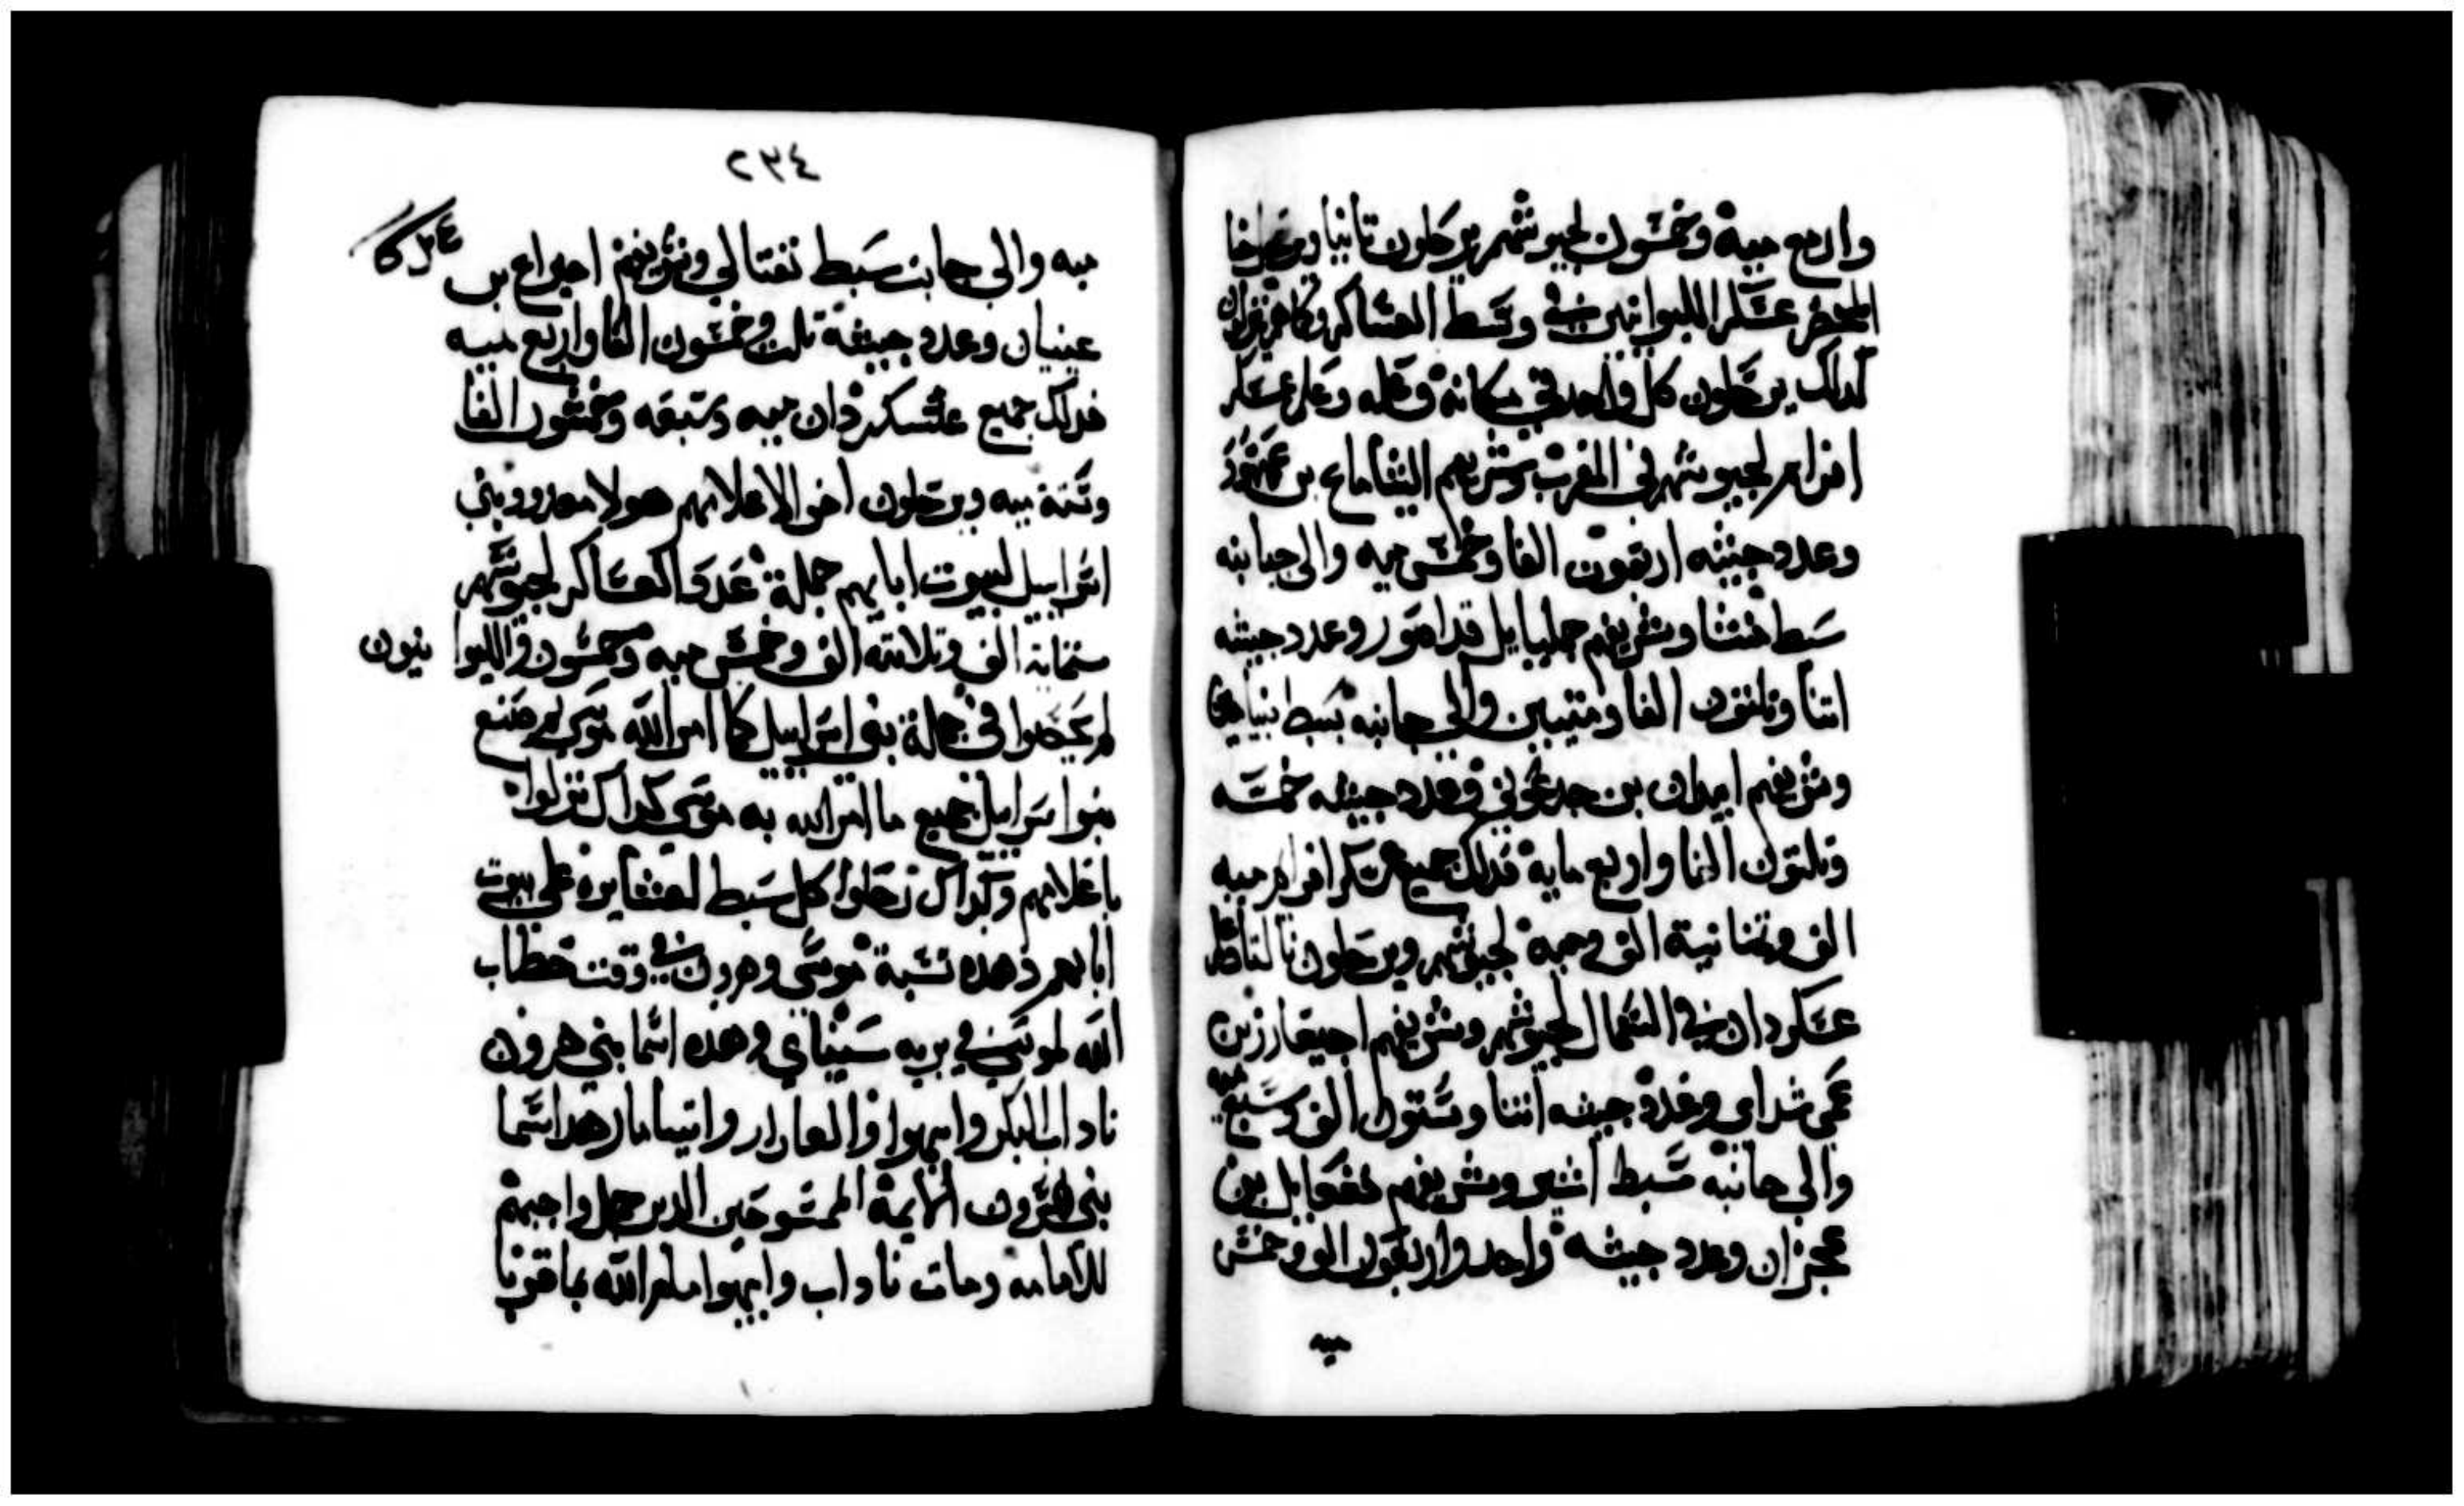 واربع ميه وخمسون لجيوشهم يرحلون تانيا ويرحل خبا
المحضر عسكر الليوانيين في وسط العساكر وكما هم ينزلون
كدلك يرحلون كل واحد في مكانه وقله وعلم عسكر
افرام لجيوشهم في المغرب وشريفهم اليشاماع بن عميهود
وعدد جيشه اربعون الفا وخمس ميه والى جانبه
سبط منشا وشريفهم جمليايل فدامور وعدد جيشه
اتنا وتلتون الفا وميتيين والي جانبه سبط بنيامين
وشريفهم ابيدان بن جدعوني وعدد جيشه خمسه
وتلتون الفا واربع مايه فدلك جميع عسكر افرام ميه
الف وتمانية الف وميه لجيوشهم ويرحلون تالتا علم
عسكر دان في الشمال لجيوشهم وشريفهم اجيعازر بن
عمي شداي وعدد جيشه اتنا وستون الف وسبع ميه
والي جانبه سبط اشير وشريفهم فجعيايل بن
عجران وعدد جيشه واحد واربعون الف وخمس
ميه
٢٣٤
ميه والي جانب سبط نفتالي وشريفهم اجيراع بن
عينان وعدد جيشة تلت وخمسون الفا واربع ميه
فدلك جميع عسكر دان ميه وسبعه وخمسون الفا
وستة ميه ويرحلون اخر الاعلامهم هولا معدود بني
اسراييل لبيوت ابايهم جملة عدد العساكر لجيوشهم
ستماية الف وتلاتة الف وخمس ميه وخمسون والليوانيون
لم يحصوا في جملة بني اسراييل كما امر الله موسى صنع
بنوا اسراييل جميع ما امر الله به موسى كداك نزلوا
باعلامهم وكداك رحلوا كل سبط لعشايره على بيوت
ابايهم وهده نسبة موسى وهرون في وقت خطاب
الله لموسى في بريه سيناي وهده اسما بني هرون
ناداب البكر وابيهوا والعازار وايتامار هدا اسما
بني هرون الايمة الممسوحين الدين كمل واجبهم
للامامه ومات ناداب وابيهوا امام الله بما قربا